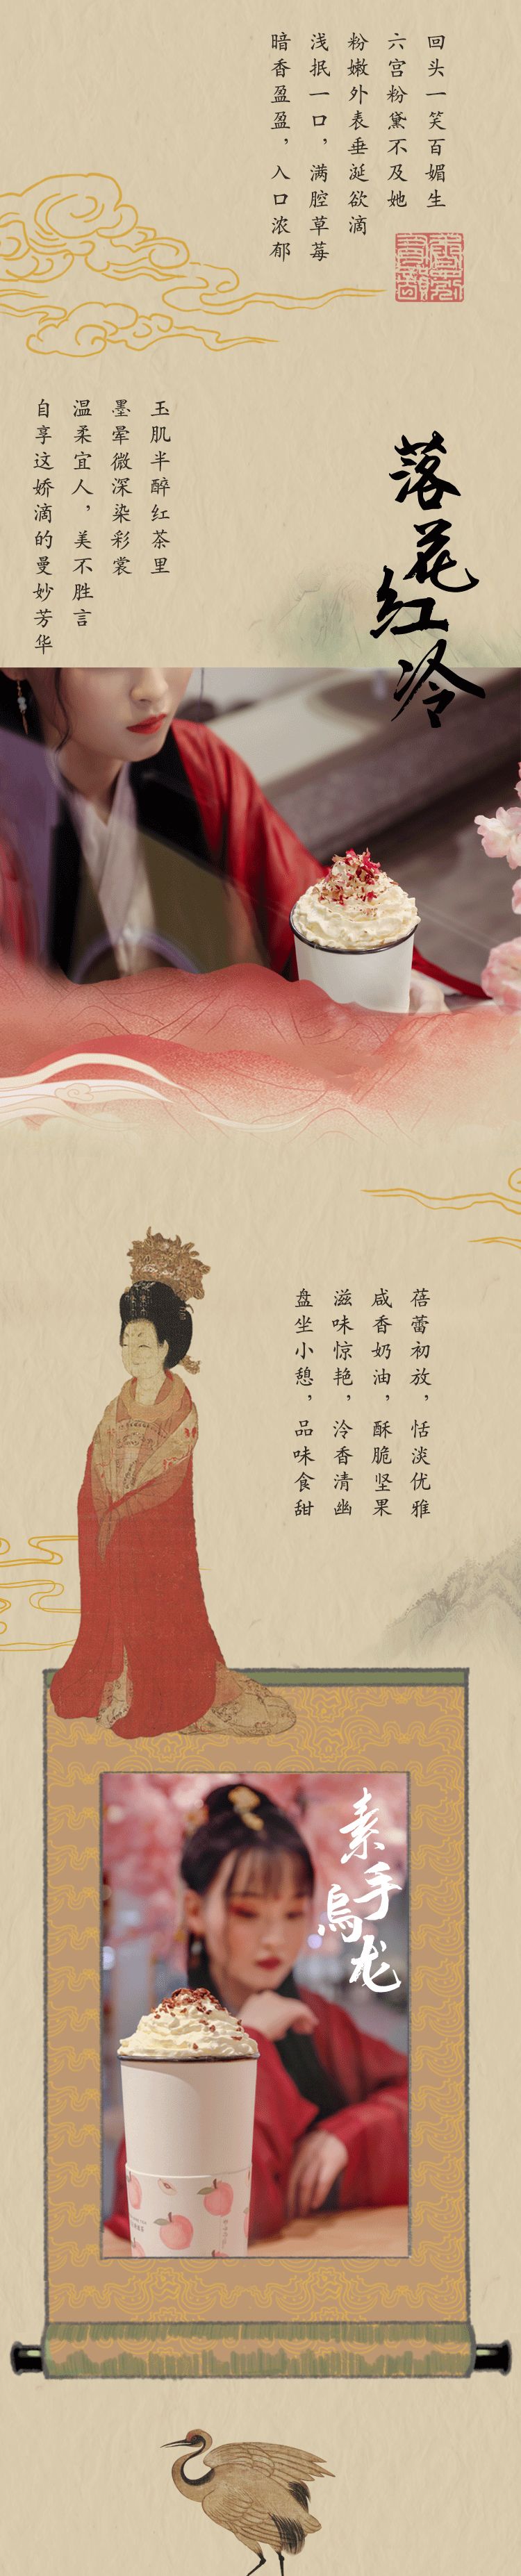 回头一笑百媚生
六宫粉黛不及她
粉嫩外表垂涎欲滴
浅抿一口，满腔草莓
暗香盈盈，入口浓郁
落花红冷
玉肌半醉红茶里
墨晕微深染彩裳
温柔宜人，美不胜言
自享这娇滴的曼妙芳华
蓓蕾初放，恬淡优雅
咸香奶油，酥脆坚果
滋味惊艳，泠香清幽
盘坐小憩，品味食甜
素手烏龙